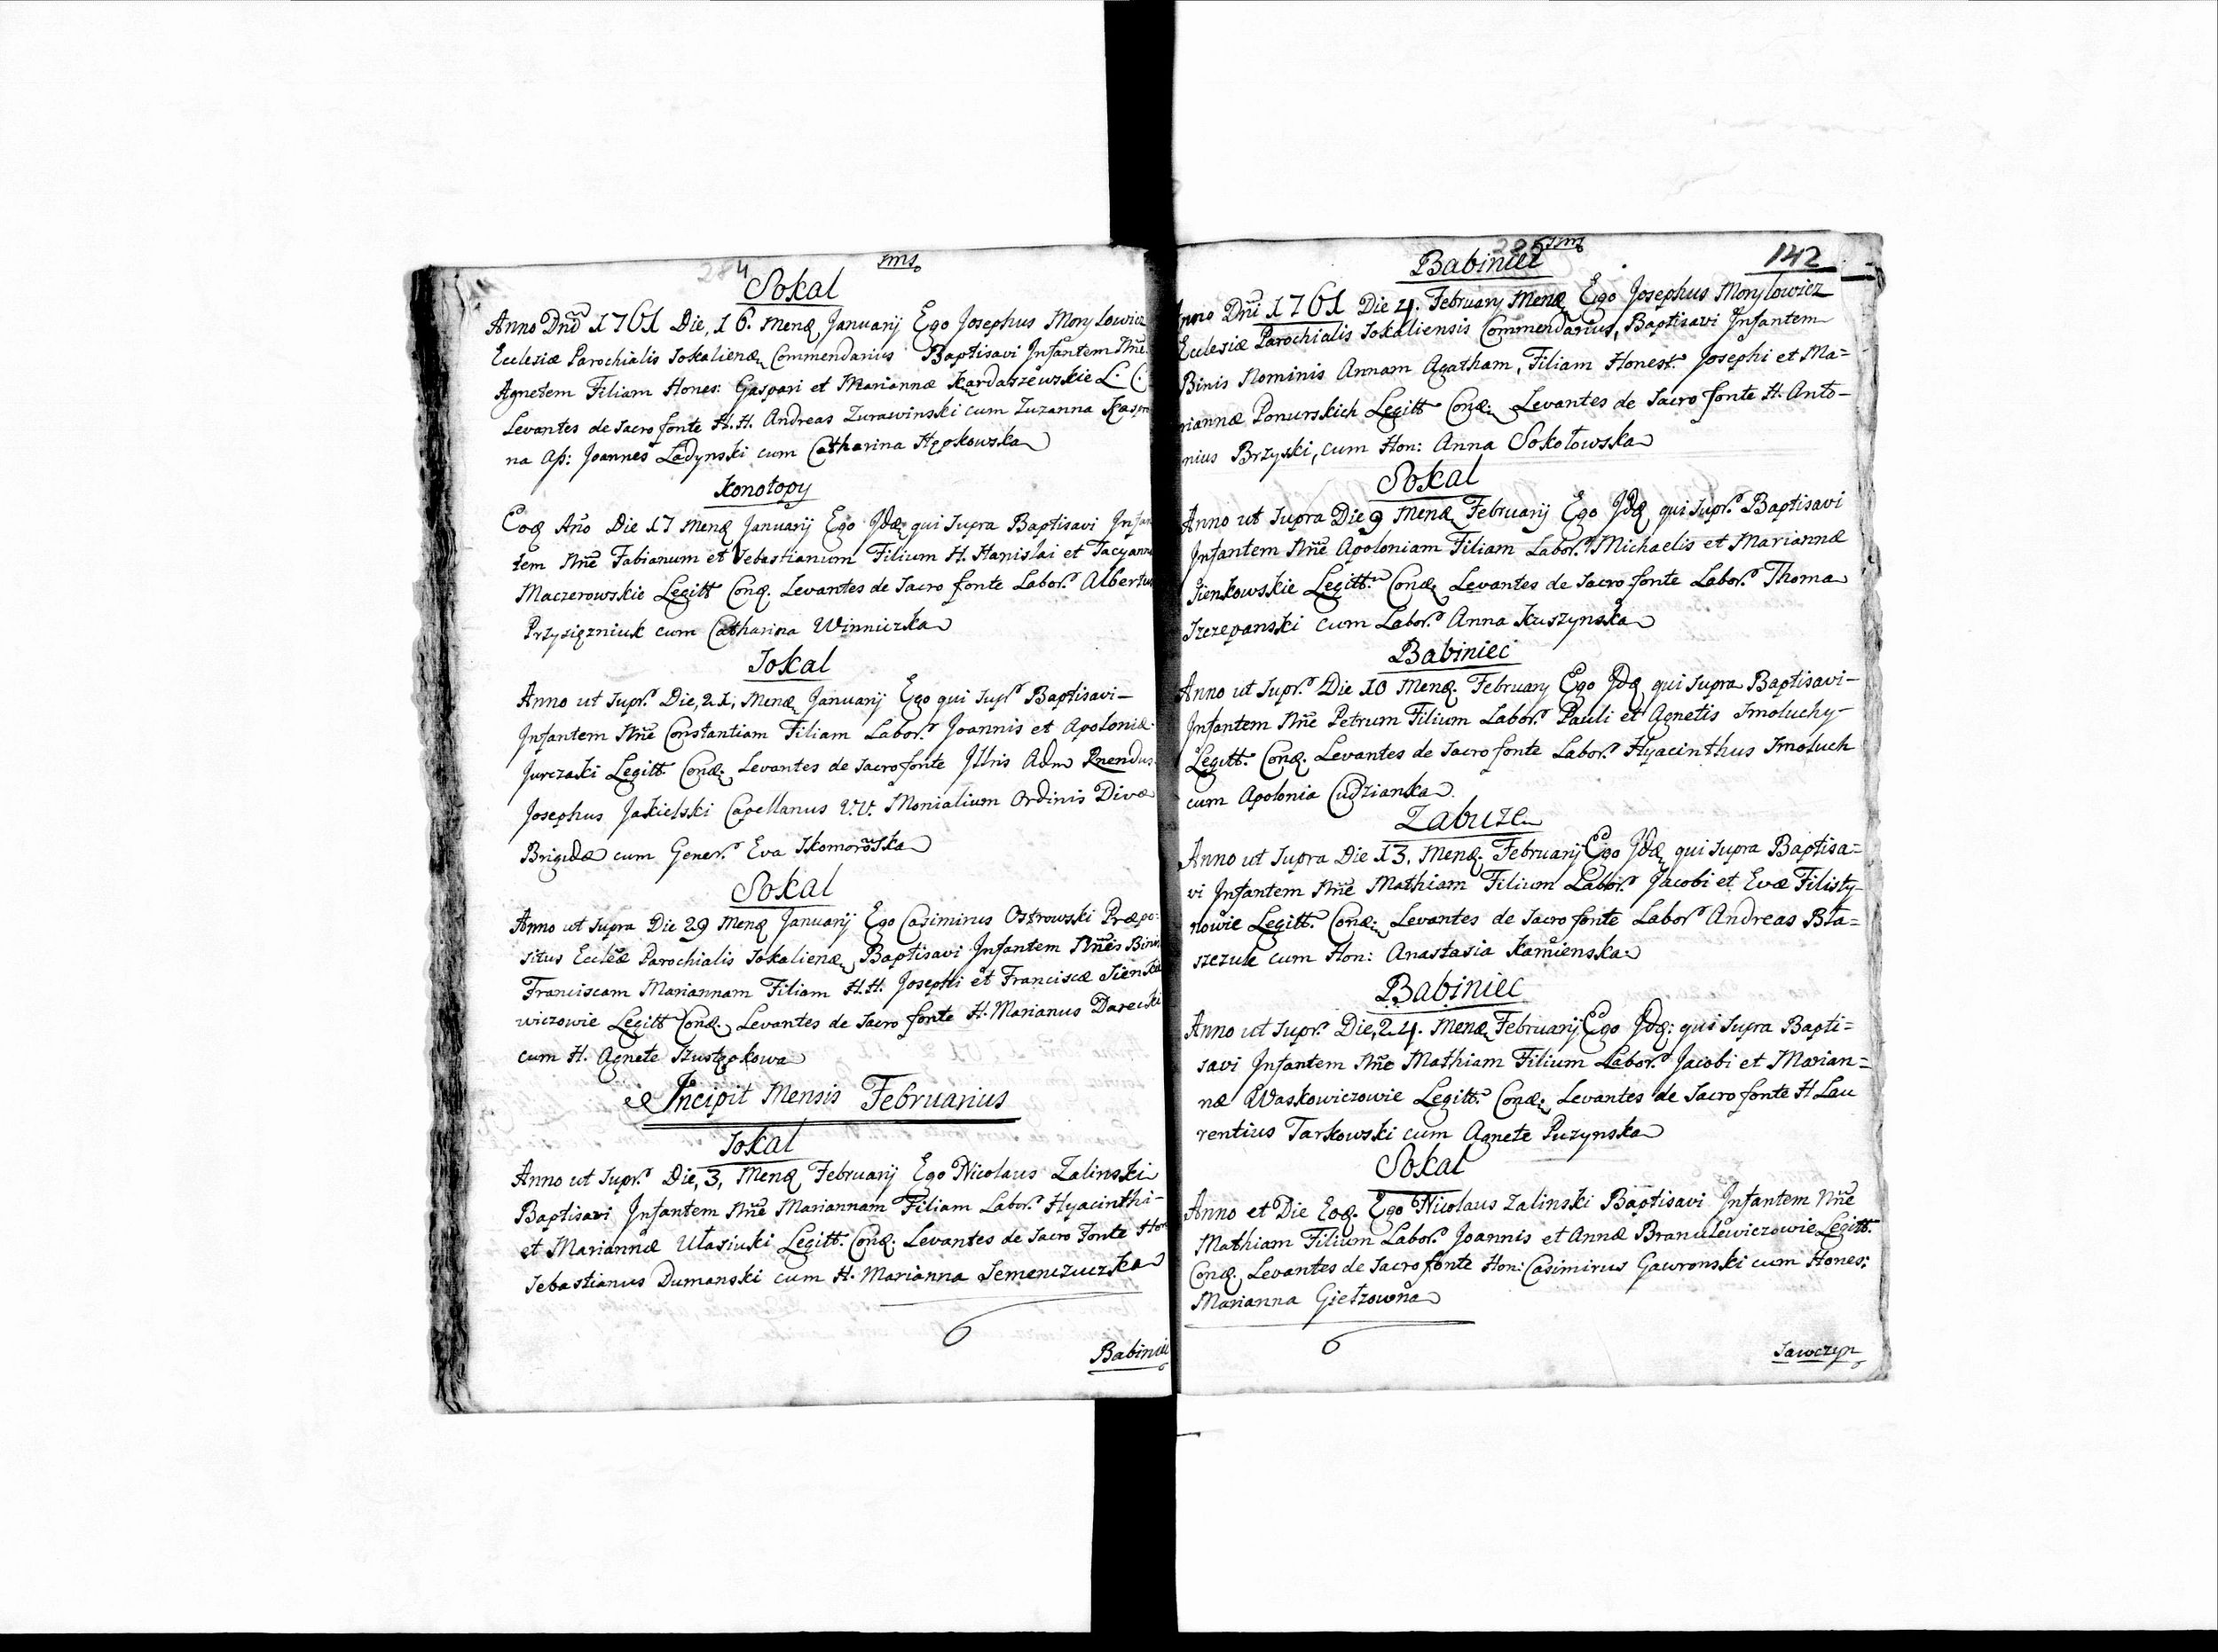 284
Sokal
Anno Dnĩ 1761 Die, 16. Mensq Januarij Ego Josephus Morylowicz
Ecclesiæ Parochialis Sokalienq Commendarius Baptisavi Infantem Nñe
Agnetem Filiam Hones: Gaspari et Mariannæ Kardaszewskie L. C.
Levantes de Sacro fonte H.H. Andreas Zurawinski cum Zuzanna
na Ap: Joannes Ladynski cum Catharina
Konotopy
Eoq Año Die 17 Menq Januarij Ego Jdq qui Supra Baptisavi Infan
tem Nñe Fabianum et Sebastianum Filium H. Stanislai et Tacyanna
Maczerowskie Legitt Conq. Levantes de Sacro fonte Labor. Albertus
Przysięzniuk cum Catharina Winniczka
Sokal
Anno ut Supr. Die, 21, Menq Januarij Ego qui Supr Baptisavi
Infantem Nñe Constantiam Filiam Labor. Joannis et Apoloniæ
Jurczaki Legitt. Conq. Levantes de Sacro fonte Jllris Adm Rnendus
Josephus Jakielski Capellanus V.V. Monialium Ordinis Divæ
Brigidæ cum Gener. Eva Skomorowska
Sokal
Anno ut Supra Die 29 Menq Januarij Ego Casimirus Ostrowski Præpo:
situs Eccleæ Parochialis Sokalienq Baptisavi Infantem Nñes Binis
Franciscam Mariannam Filiam H.H. Josephi et Franciscæ Sienkie
wiczowie Legitt Conq. Levantes de Sacro fonte H. Marianus Darecki
cum H. Agnete
Incipit Mensis Februarius
Sokal
Anno ut Supr. Die, 3, Menq Februarij Ego Nicolaus Zalinski
Baptisavi Infantem Nñe Mariannam Filiam Labor. Hyacinthi
et Mariannæ Ułasiuki Legitt. Conq. Levantes de Sacro Fonte Hon
Sebastianus Dumanski cum H. Marianna Semenczuczka
Babiniec
285
142
Babiniec
Anno Dñi 1761 Die 4. February Menq Ego Josephus Morylowicz
Ecclesiæ Parochialis Sokaliensis Commendarius, Baptisavi Infantem
Binis Nominis Annam Agatham, Filiam Honest. Josephi et Ma=
riannæ Ponurskich Legitt Conq. Levantes de Sacro fonte H. Anto-
nius Brzyski, cum Hon: Anna Sokołowska
Sokal
Anno ut Supra Die 9 Menq Februarij Ego Jdq qui Supr. Baptisavi
Infantem Nñe Apoloniam Filiam Labor. Michaelis et Mariannæ
Sienkowskie Legitt. Conq. Levantes de Sacro fonte Labor. Thoma
Szczepanski cum Labor. Anna Kuszynska
Babiniec
Anno ut Supr. Die 10 Menq. February Ego Jdq qui Supra Baptisavi-
Infantem Nñe Petrum Filium Labor. Pauli et Agnetis Smoluchy
Legitt. Conq. Levantes de Sacro fonte Labor. Hyacinthus Smoluch
cum Apolonia Cudzianka
Zabuze
Anno ut Supra Die 13. Menq. Februarij Ego Jdq qui Supra Baptisa=
vi Infantem Nñe Mathiam Filium Labor. Jacobi et Evæ Filisty-
nowie Legitt. Conq. Levantes de Sacro fonte Labor Andreas Bła=
szczuk cum Hon: Anastasia Kamienska
Babiniec
Anno ut Supr. Die, 24. Menq Februarij Ego Jdq: qui Supra Bapti=
savi Infantem Nñe Mathiam Filium Labor. Jacobi et Marian=
næ Waskowiczowie Legitt. Conq. Levantes de Sacro fonte H Lau
rentius Tarkowski cum Agnete Puzynska
Sokal
Anno et Die Eoq. Ego Nicolaus Zalinski Baptisavi Infantem Nñe
Mathiam Filium Labor. Joannis et Annæ Branulewiczowie Legitt.
Conq. Levantes de Sacro fonte Hon: Casimirus Gawronski cum Hones:
Marianna Giełzowna
Sawczyn